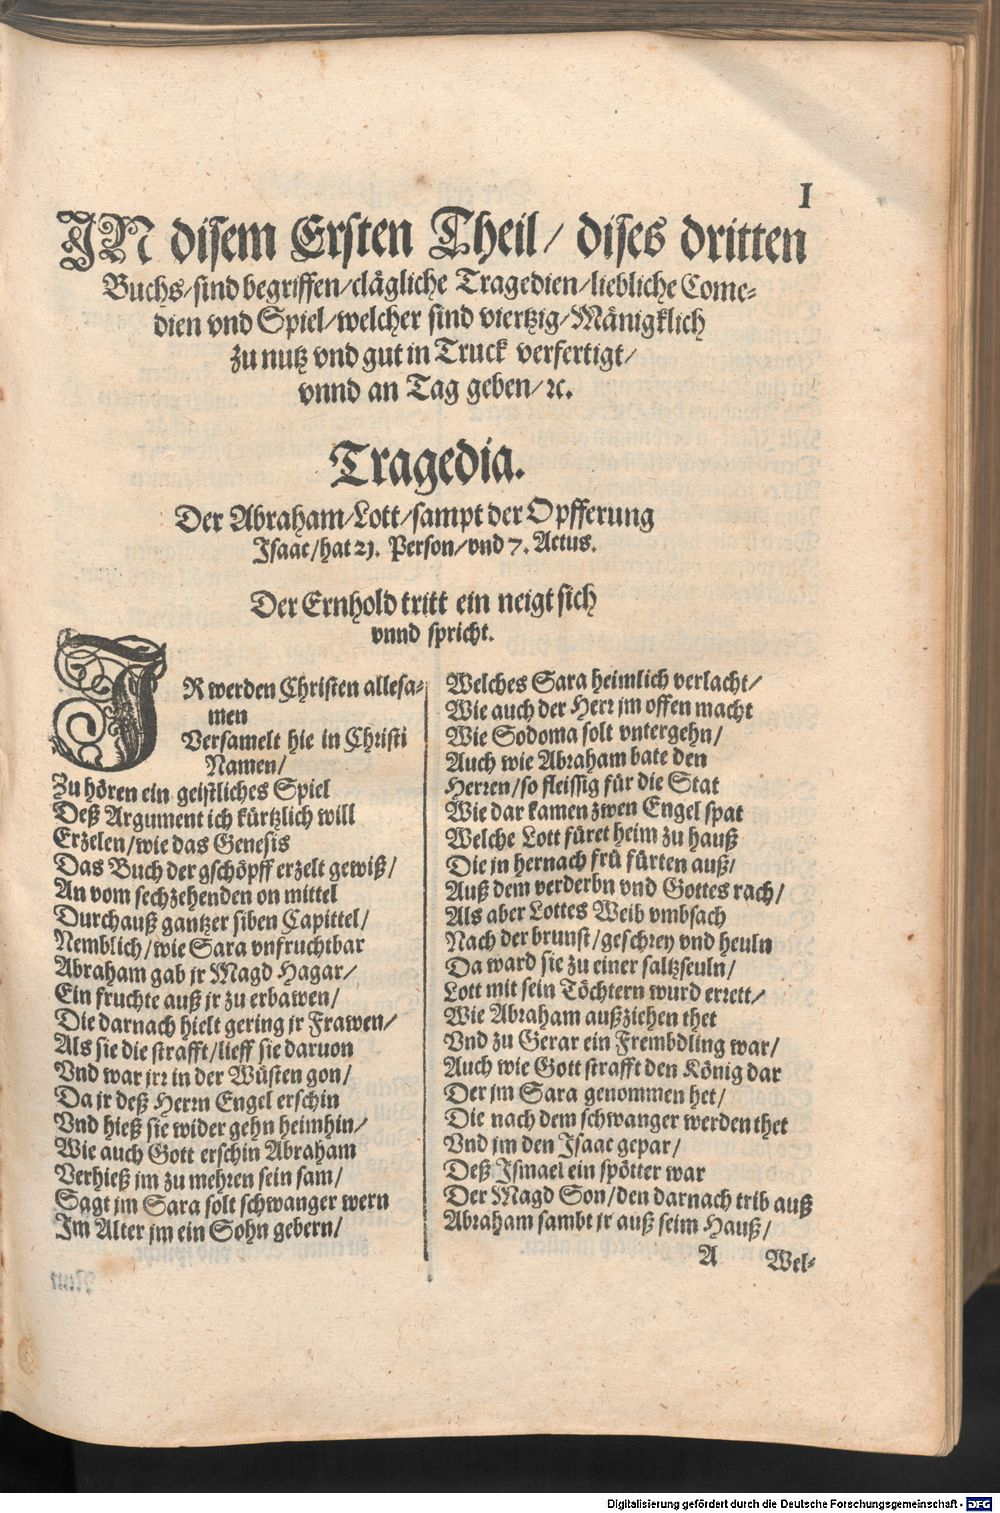 I
IN disem Ersten Theil/ dises dritten
Buchs/sind begriffen/clägliche Tragedien/liebliche Come-
dien vnd Spiel/welcher sind viertzig/Mänigklich
zu nutz vnd gut in Truck verfertigt/
vnnd an Tag geben/ꝛc.
Tragedia.
Der Abraham/Lott/sampt der Opfferung
Isaac/hat 21. Person/vnd 7. Actus.
Der Ernhold tritt ein neigt sich
vnnd spricht.
IR werden Christen allesa-
men
Versamelt hie in Christi
Namen/
Zu hören ein geistliches Spiel
Deß Argument ich kürtzlich will
Erzelen/wie das Genesis
Das Buch der gschöpff erzelt gewiß/
An vom sechzehenden on mittel
Durchauß gantzer siben Capittel/
Nemblich/wie Sara vnfruchtbar
Abraham gab jr Magd Hagar/
Ein fruchte auß jr zu erbawen/
Die darnach hielt gering jr Frawen/
Als sie die strafft/lieff sie daruon
Vnd war jrr in der Wüsten gon/
Da jr deß Herrn Engel erschin
Vnd hieß sie wider gehn heimhin/
Wie auch Gott erschin Abraham
Verhieß jm zu mehren sein sam/
Sagt jm Sara solt schwanger wern
Im Alter jm ein Sohn gebern/
Welches Sara heimlich verlacht/
Wie auch der Herr jm offen macht
Wie Sodoma solt vntergehn/
Auch wie Abraham bate den
Herren/so fleissig für die Stat
Wie dar kamen zwen Engel spat
Welche Lott füret heim zu hauß
Die jn hernach frü fürten auß/
Auß dem verderbn vnd Gottes rach/
Als aber Lottes Weib vmbsach
Nach der brunst/geschrey vnd heuln
Da ward sie zu einer saltzseuln/
Lott mit sein Töchtern wurd errett/
Wie Abraham außziehen thet
Vnd zu Gerar ein Frembdling war/
Auch wie Gott strafft den König dar
Der jm Sara genommen het/
Die nach dem schwanger werden thet
Vnd jm den Isaac gepar/
Deß Ismael ein spötter war
Der Magd Son/den darnach trib auß
Abraham sambt jr auß seim Hauß/
A Wel-
Digitalisierung gefördert durch die Deutsche Forschungsgemeinschaft - DFG